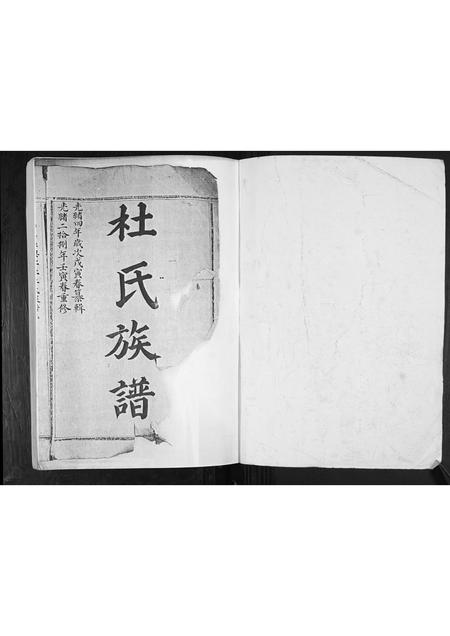 杜氏族譜
光緒四年歲次戊寅春纂輯
光緒二拾捌年壬寅春重修